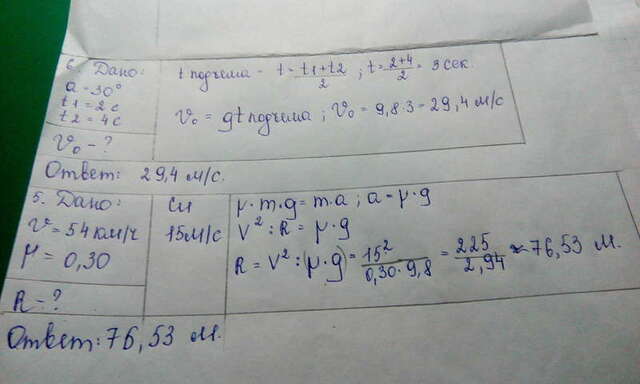 6. Дано:
α = 30°
t1 = 2 с
t2 = 4 с
V₀ - ?
t подъема - t = (t1+t2)/2 ; t = (2+4)/2 = 3 сек.
V₀ = gt подъема ; V₀ = 9,8·3 = 29,4 м/с
Ответ: 29,4 м/с.
5. Дано:
V = 54 км/ч
μ = 0,30
R - ?
Си
15 м/с
μ·m·g = m·a ; a = μ·g
V² : R = μ·g
R = V² : (μ·g) = 15²/(0,30·9,8) = 225/2,94 ≈ 76,53 м.
Ответ: 76,53 м.